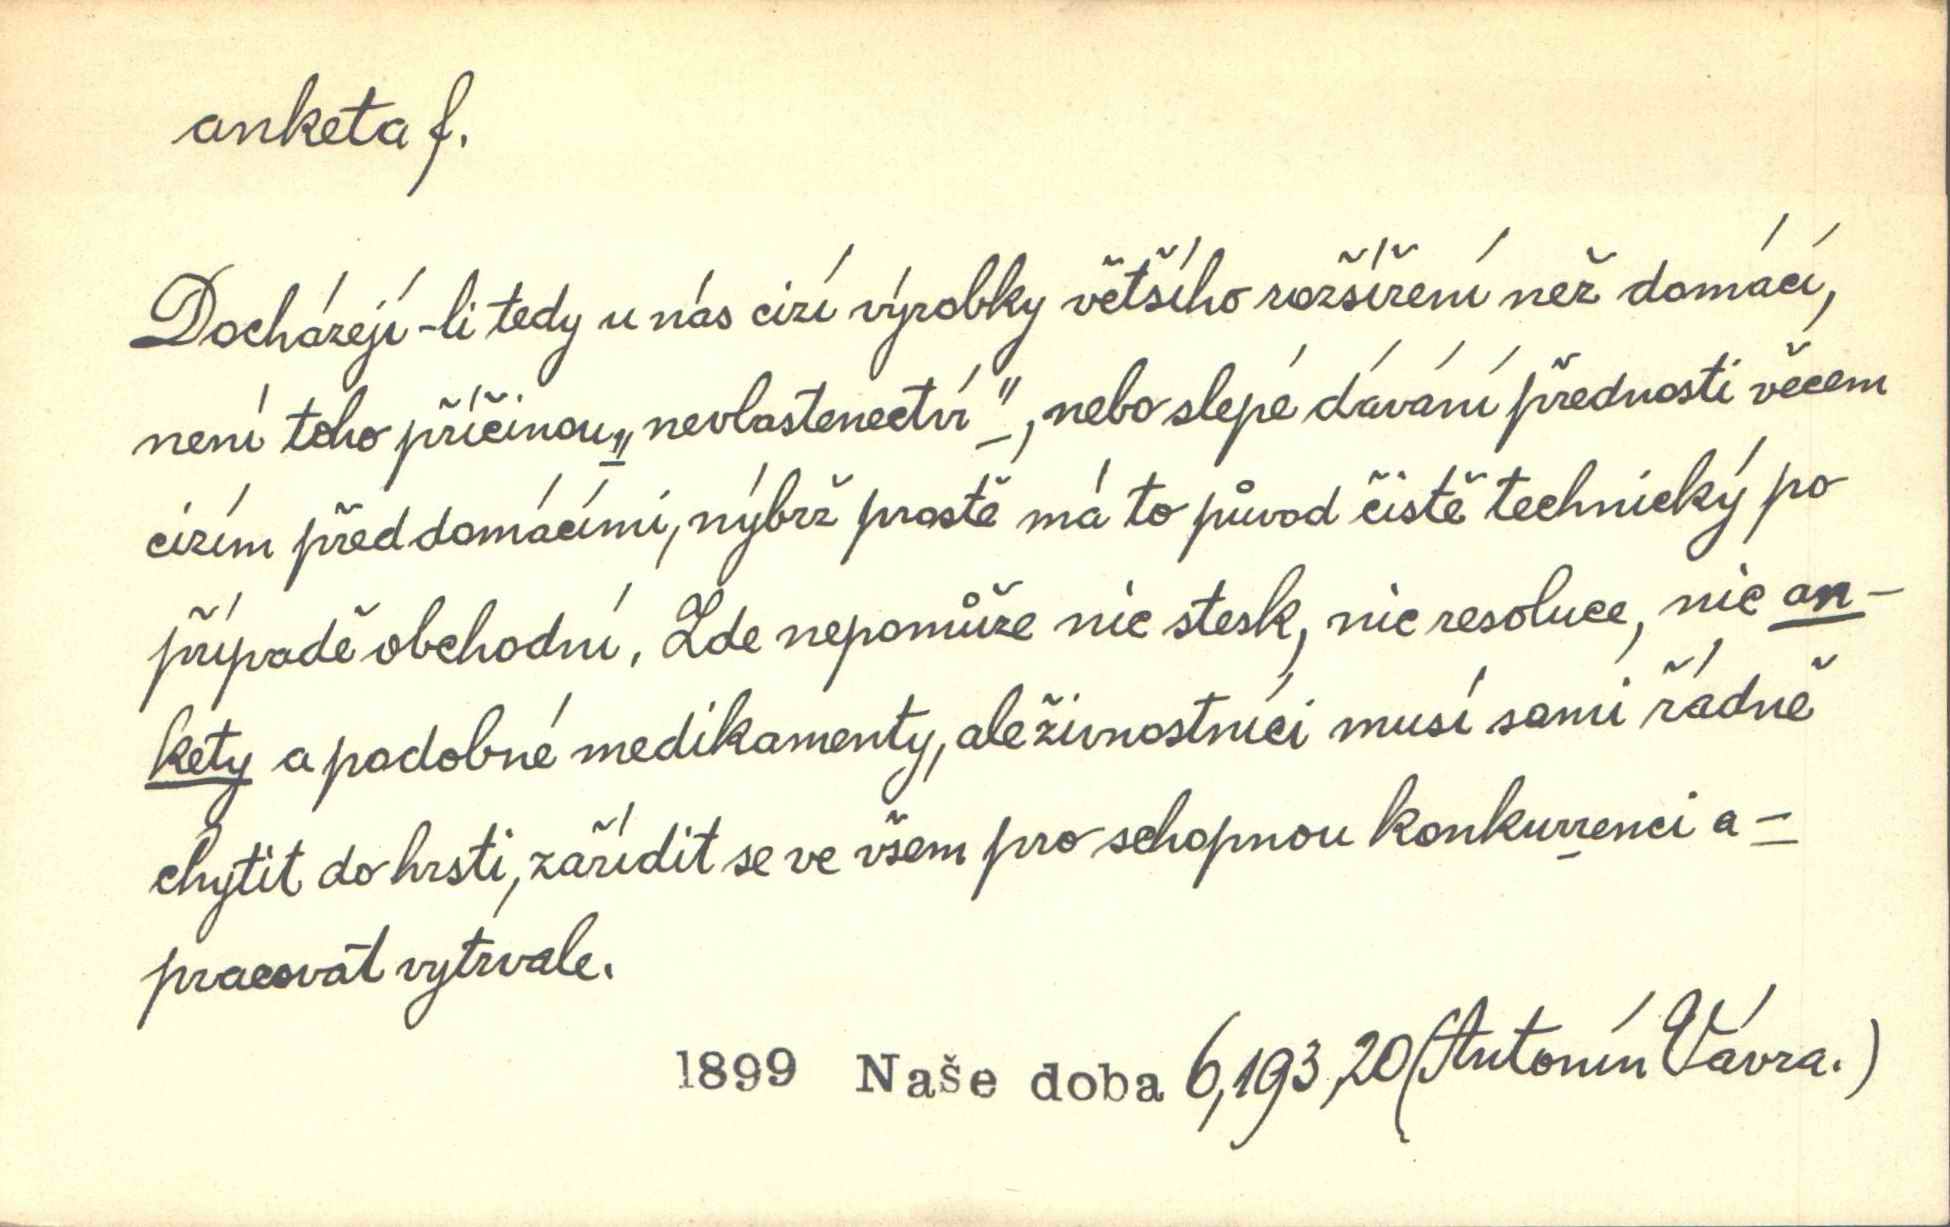 anketa f.
Docházejí-li tedy u nás cizí výrobky většího rozšíření než domácí,
není toho příčinou „nevlastenectví", nebo slepé dávání přednosti věcem
cizím před domácími, nýbrž prostě má to původ čistě technický po
případě obchodní. Zde nepomůže nic stesk, nic resoluce, nic an-
kety a podobné medikamenty, ale živnostníci musí sami řádně
chytit do hrsti, zařídit se ve všem pro schopnou konkurrenci a -
pracovat vytrvale.
1899 Naše doba 6,193,20 (Antonín Vávra.)